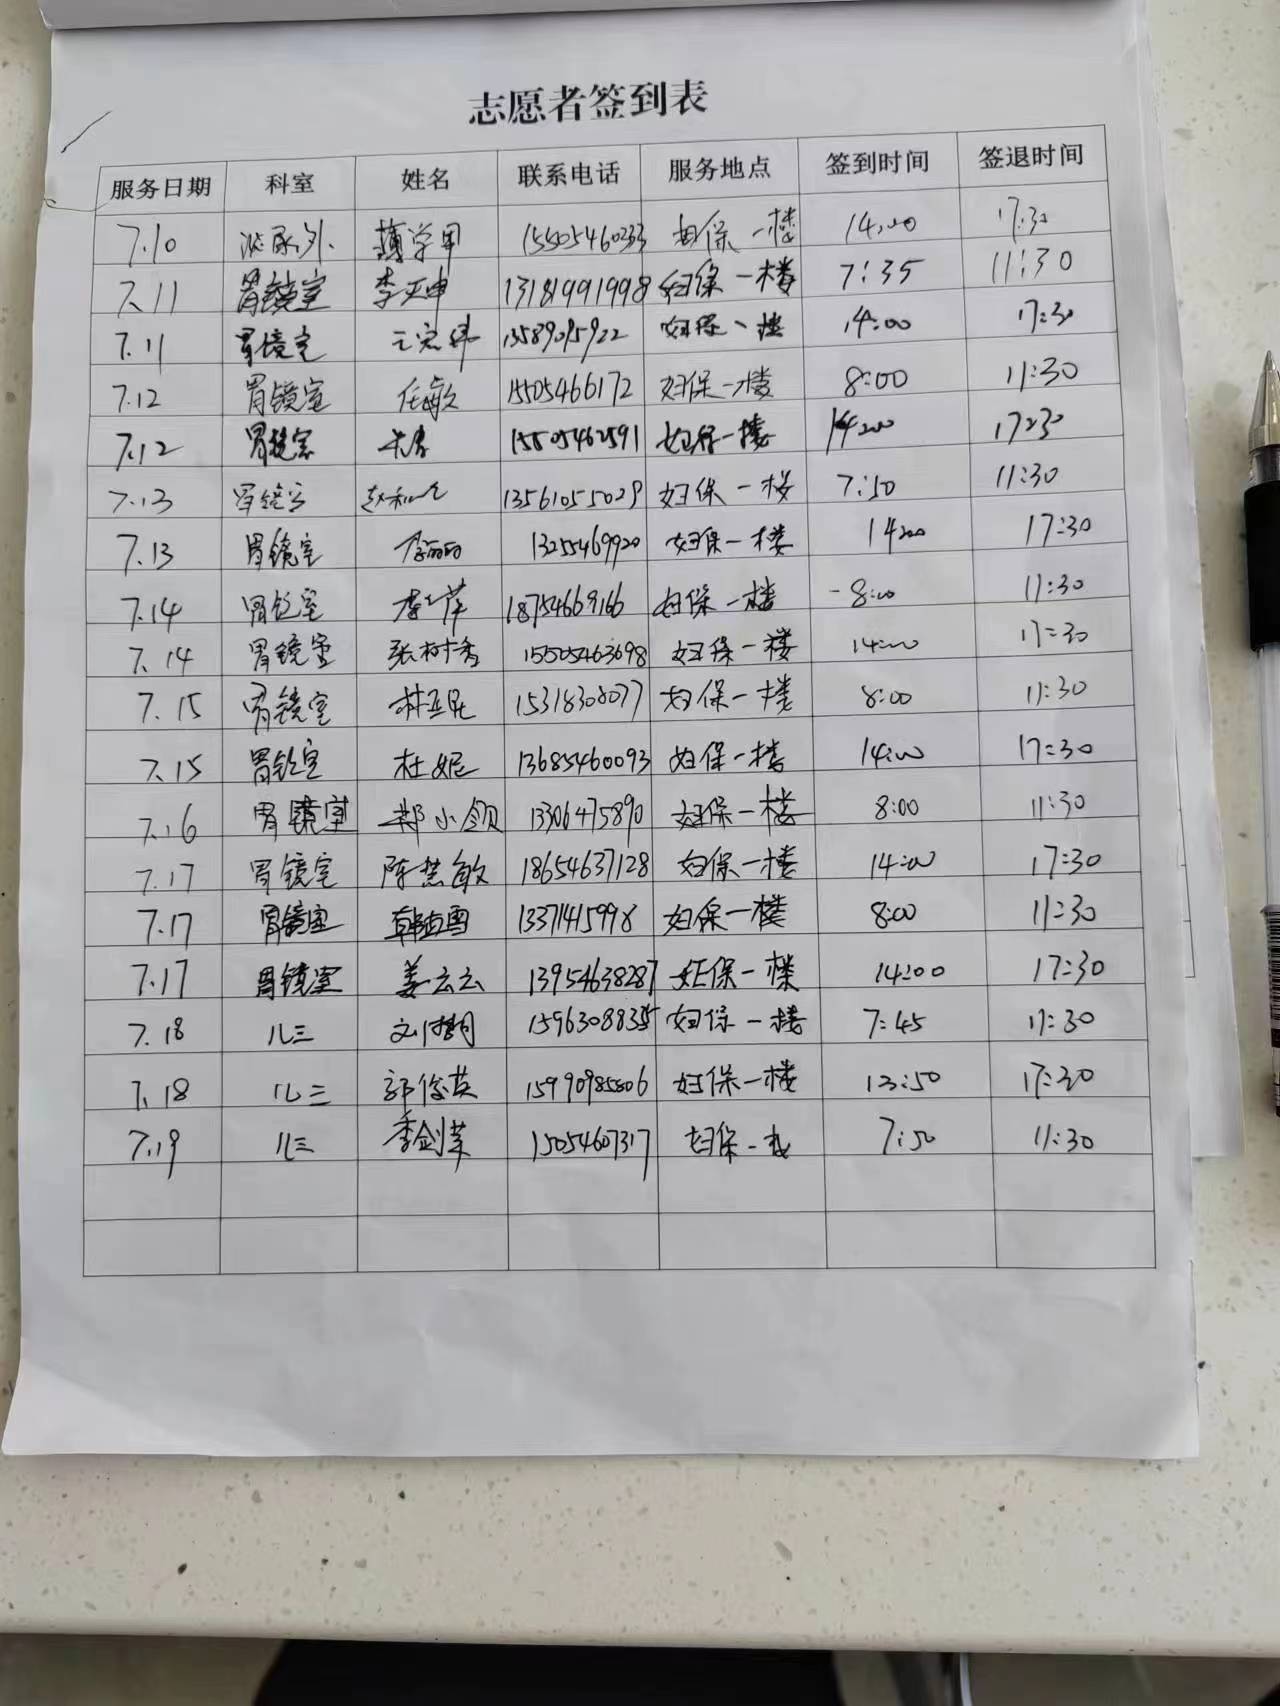 志愿者签到表
服务日期 科室 姓名 联系电话 服务地点 签到时间 签退时间
7.10 泌尿外 薄学军 15505460233 妇保一楼 14:00 17:30
7.11 胃镜室 李 13181991998 妇保一楼 7:35 11:30
7.11 胃镜室 13589095922 妇保一楼 14:00 17:30
7.12 胃镜室 任敏 15505466172 妇保一楼 8:00 11:30
7.12 胃镜室 15505462591 妇保一楼 14:00 17:30
7.13 胃镜室 13561055029 妇保一楼 7:50 11:30
7.13 胃镜室 李丽丽 13255469920 妇保一楼 14:00 17:30
7.14 胃镜室 李萍 18754669166 妇保一楼 8:00 11:30
7.14 胃镜室 张树秀 15505463698 妇保一楼 14:00 17:30
7.15 胃镜室 林亚民 15318308077 妇保一楼 8:00 11:30
7.15 胃镜室 杜妮 13685460093 妇保一楼 14:00 17:30
7.16 胃镜室 郑小领 13306475890 妇保一楼 8:00 11:30
7.17 胃镜室 陈慧敏 18654637128 妇保一楼 14:00 17:30
7.17 胃镜室 韩雪 13371415998 妇保一楼 8:00 11:30
7.17 胃镜室 姜云云 13954638287 妇保一楼 14:00 17:30
7.18 儿三 15963088355 妇保一楼 7:45 11:30
7.18 儿三 郭俊英 15990985806 妇保一楼 13:50 17:30
7.19 儿三 李剑苹 15054607317 妇保一楼 7:50 11:30